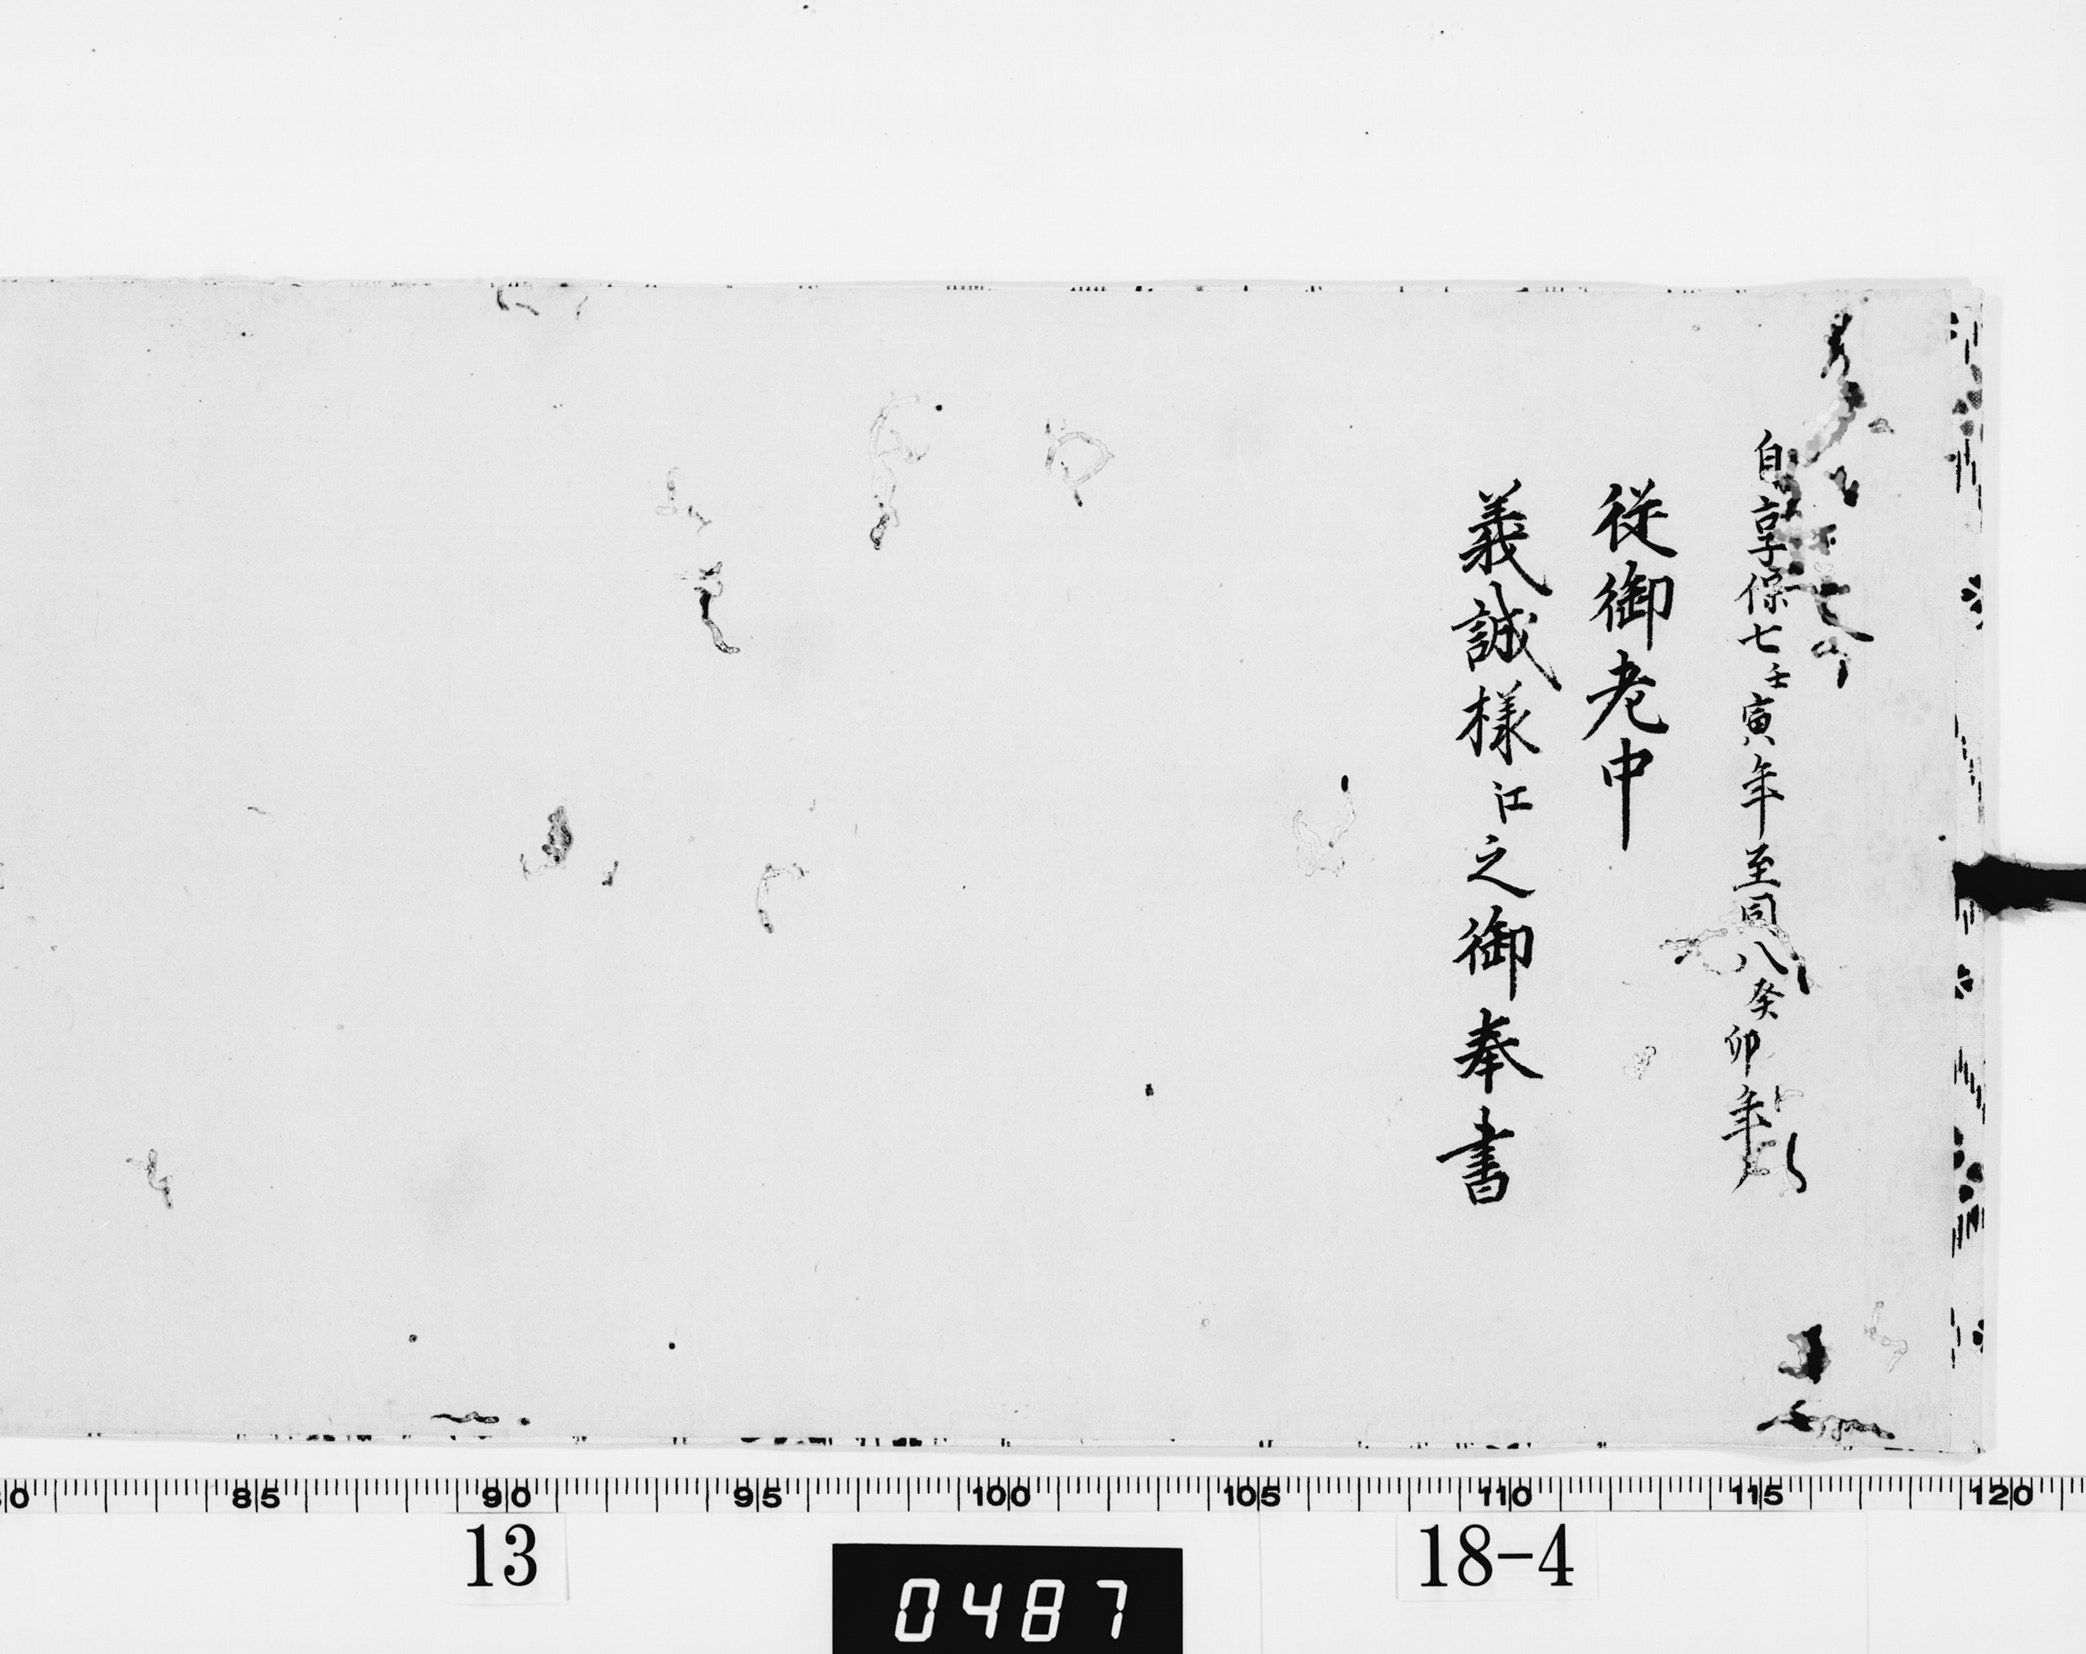 自享保七壬寅年至同八癸卯年
従御老中
義誠様江之御奉書
85 90 95 100 105 110 115 120
13
18-4
0487